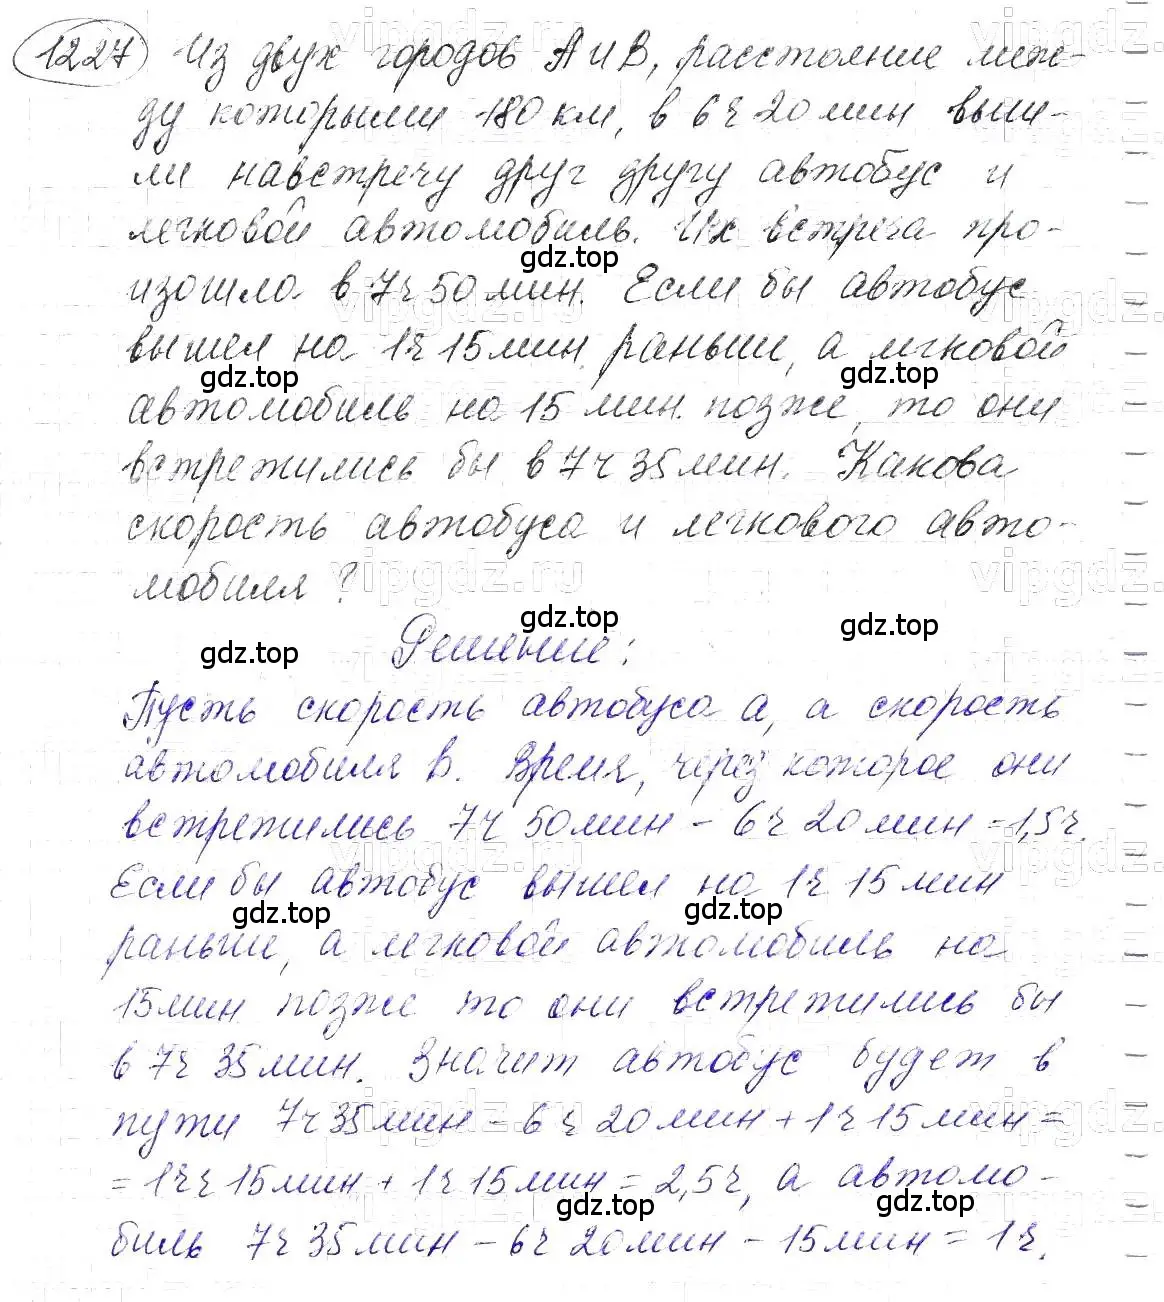 1227 Из двух городов А и В, расстояние меж-
ду которыми 180 км, в 6 ч 20 мин выш-
ли навстречу друг другу автобус и
легковой автомобиль. Их встреча про-
изошла в 7 ч 50 мин. Если бы автобус
вышел на 1 ч 15 мин раньше, а легковой
автомобиль на 15 мин. позже, то они
встретились бы в 7 ч 35 мин. Какова
скорость автобуса и легкового авто-
мобиля?
Решение:
Пусть скорость автобуса а, а скорость
автомобиля в. Время, через которое они
встретились 7 ч 50 мин - 6 ч 20 мин = 1,5 ч.
Если бы автобус вышел на 1 ч 15 мин
раньше, а легковой автомобиль на
15 мин позже то они встретились бы
в 7 ч 35 мин. Значит автобус будет в
пути 7 ч 35 мин - 6 ч 20 мин + 1 ч 15 мин =
= 1 ч 15 мин + 1 ч 15 мин = 2,5 ч, а автомо-
биль 7 ч 35 мин - 6 ч 20 мин - 15 мин = 1 ч.
gdz.top
gdz.top
gdz.top
gdz.top
gdz.top
gdz.top
gdz.top
gdz.top
gdz.top
gdz.top
vipgdz.ru